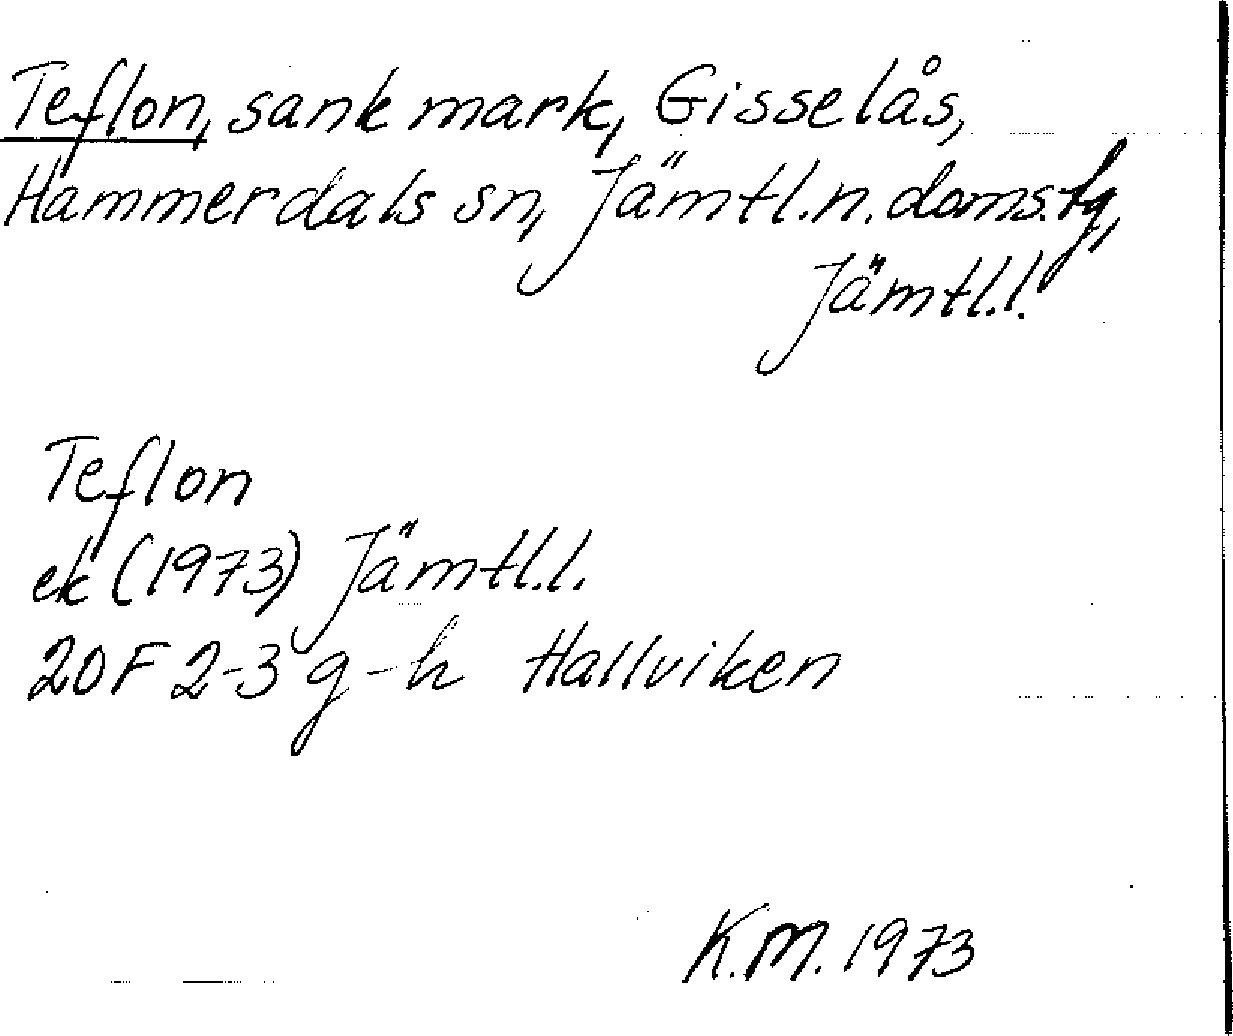 Teflon, sank mark, Gisselås,
Hammerdals sn, Jämtl.n.doms.tg,
Jämtl.l.
Teflon
ek (1973) Jämtl.l.
20F 2-3 g-h Hallviken
K.M. 1973